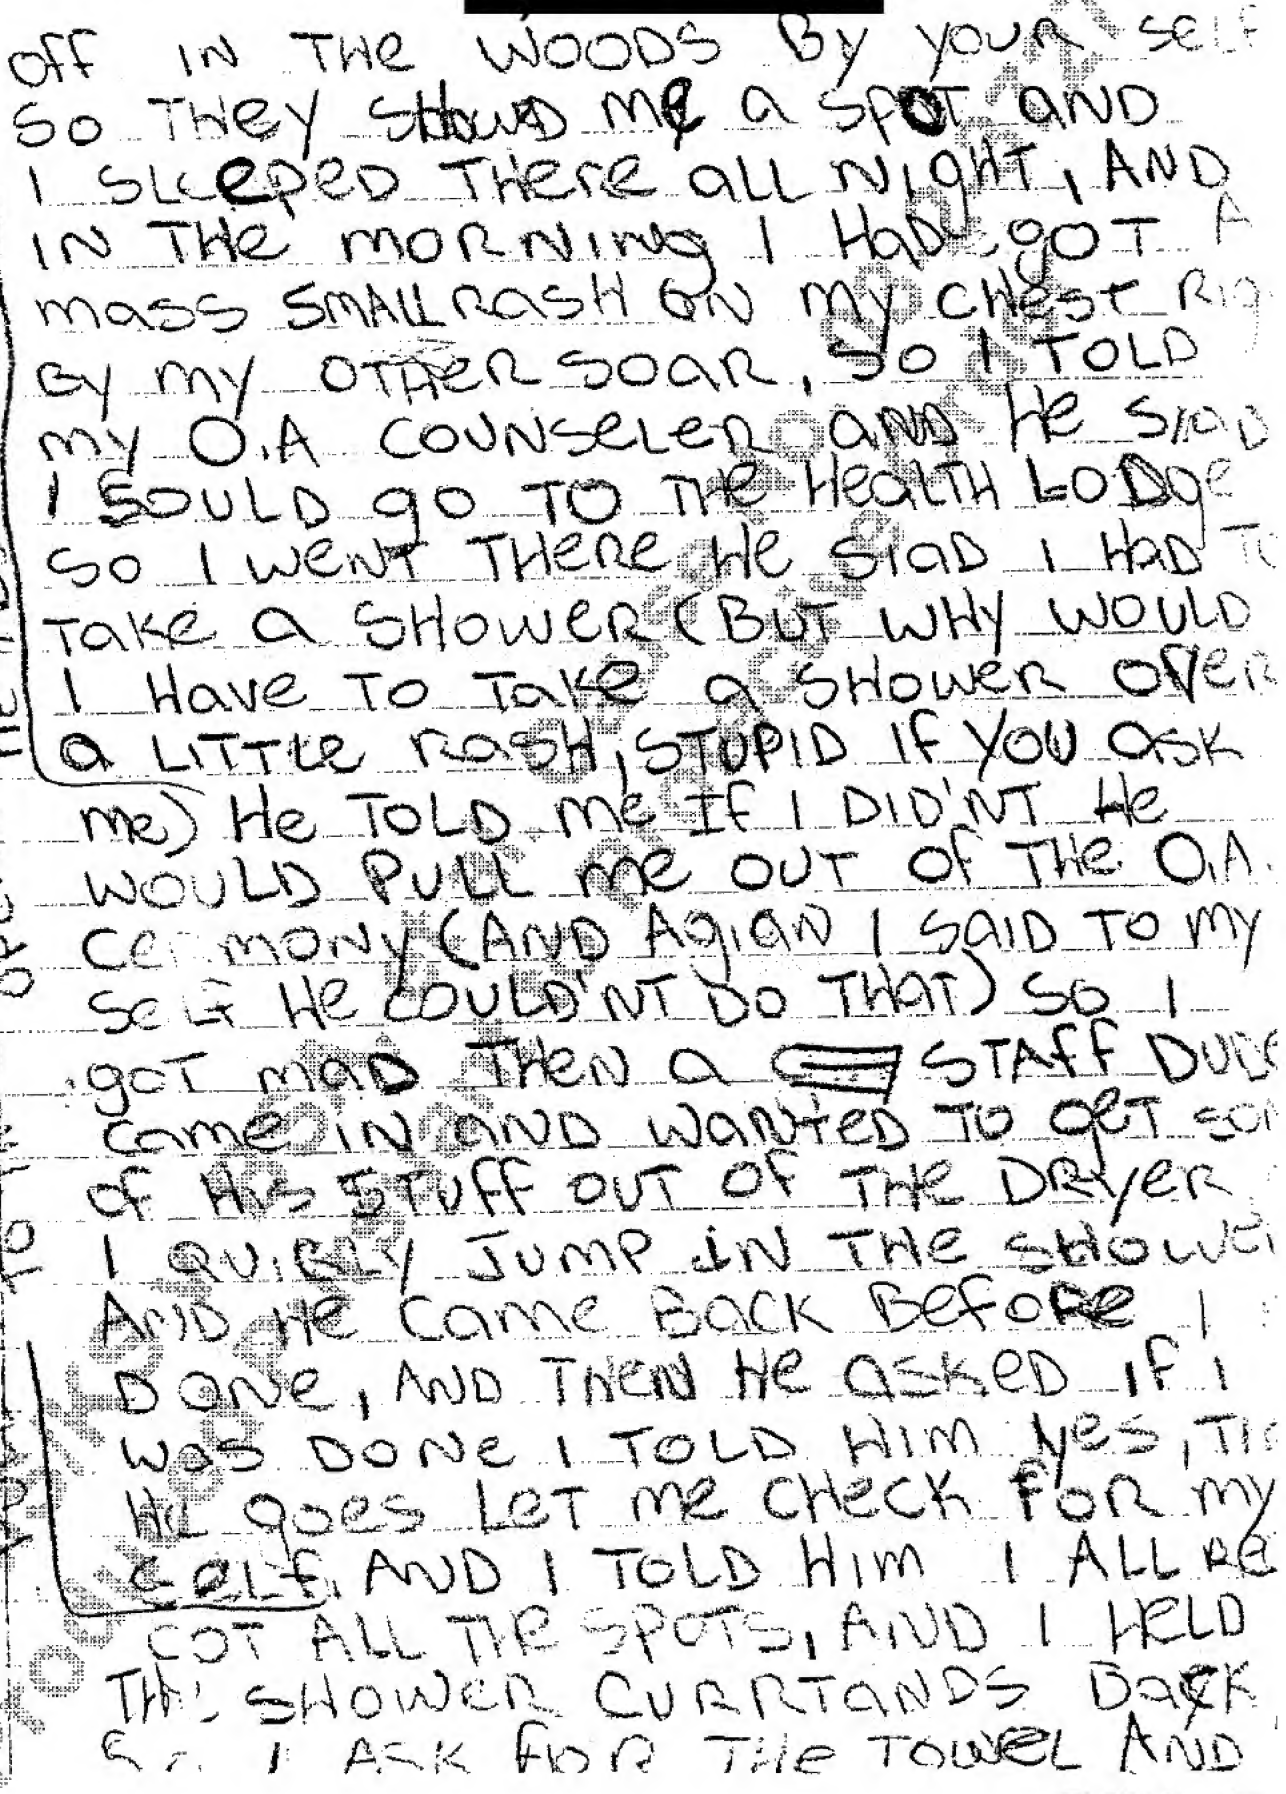 off IN THE WOODS By yOUR SELF
SO THEy SHOWD ME a SPOT AND
I SLEEPED THERE aLL NIgHT, AND
IN THE MORNINg I HAD gOT A
mass SMALL RASH ON my CHEST RIg
By my OTHER SOAR, SO I TOLD
my O.A COUNSELER AND HE SIAD
I SOULD gO TO THE HEALTH LODge
SO I WENT THERE HE SIAD I HAD TO
TAKE a SHOWER (BUT WHY WOULD
I HAVE TO TAKE a SHOWER OVER
a LITTLE RASH, STUPID IF YOU ASK
me) HE TOLD me IF I DID'NT HE
WOULD PULL me OUT OF THE O.A.
CERMONY (AND AgIAN I SAID TO MY
SELF HE COULD'NT DO THAT) SO I
gOT MAD THEN a STAFF DUDE
CAME IN AND WANTED TO gET
OF HIS STUFF OUT OF THE DRYER
I QUICKLY JUMP IN THE SHOWER
AND HE CAME BACK BEFORE I
DONE, AND THEN HE ASKED IF I
WAS DONE I TOLD HIM YES,
HE gOES LET ME CHECK FOR MY
SELF, AND I TOLD HIM I ALL RE
GOT ALL THE SPOTS, AND I HELD
THE SHOWER CURRTANDS BACK
SO I ASK FOR THE TOWEL AND